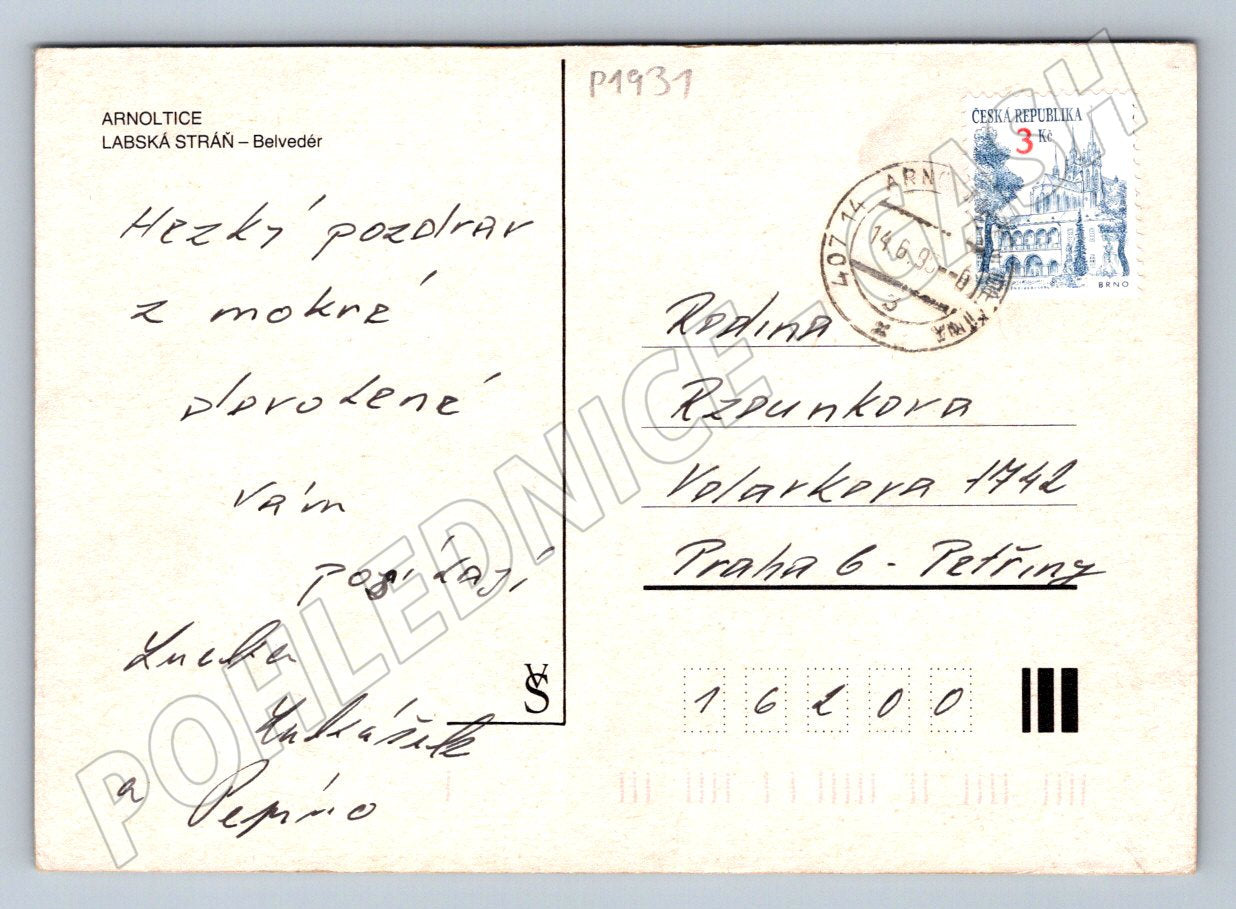 P1931
ARNOLTICE
LABSKÁ STRÁŇ – Belvedér
ČESKÁ REPUBLIKA
3 Kč
BRNO
407 14 ARNO
14.6.9
3
Hezký pozdrav
z mokré
dovolené
Vám
posílají
Lucka
Lukášek
a Pepíno
VŠ
Rodina
Rzounkova
Volavkova 1742
Praha 6 - Petřiny
16200
POHLEDNICE - CASH